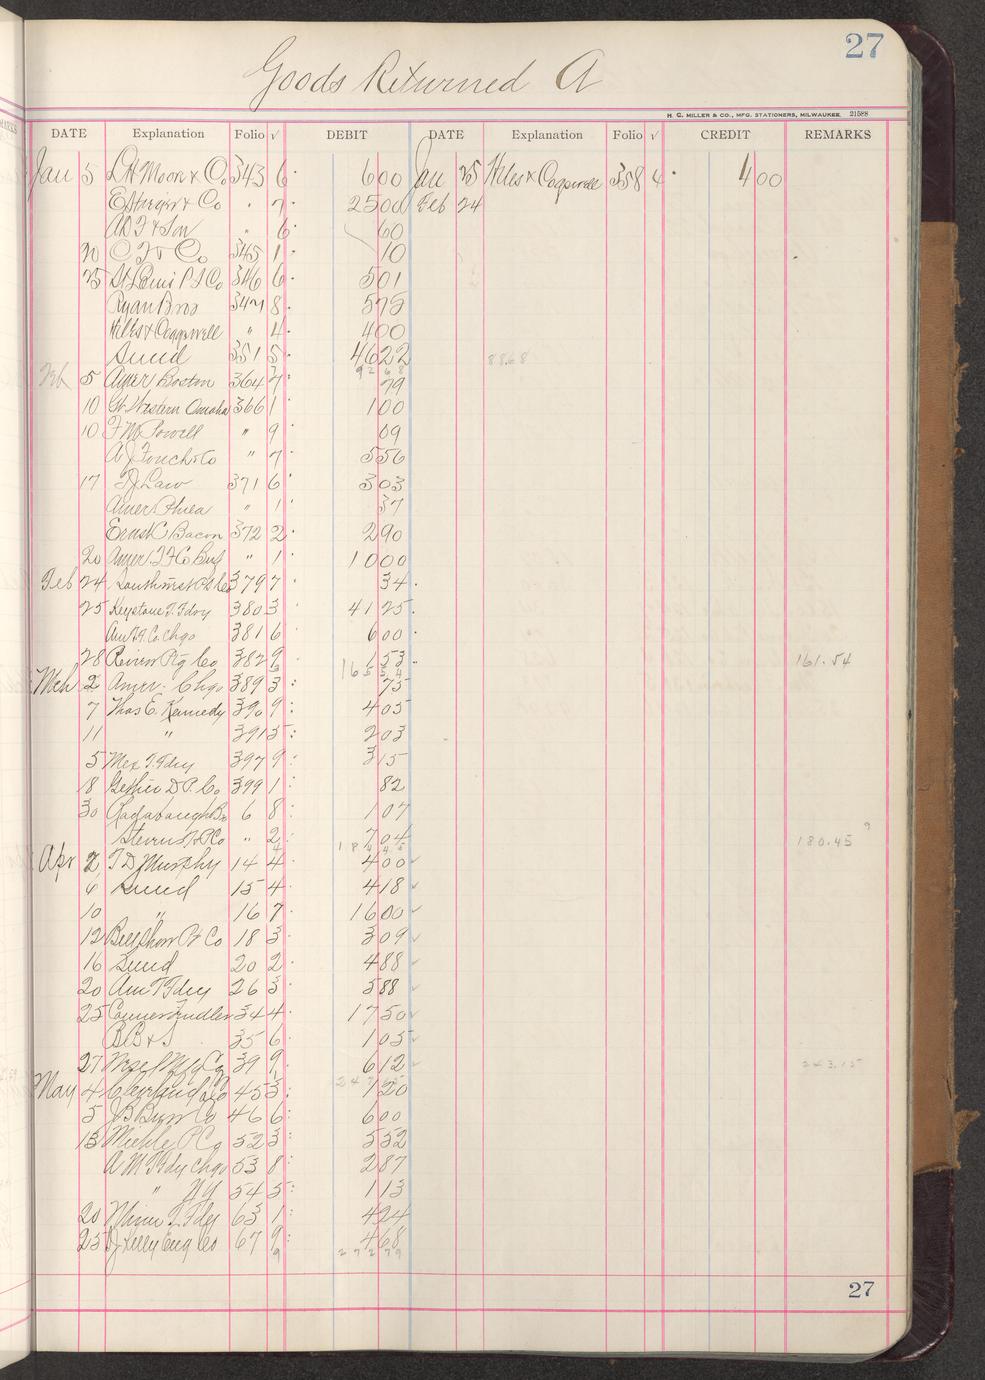 27
Goods Returned A
H. C. MILLER & CO., MFG. STATIONERS, MILWAUKEE. 21588
DATE Explanation Folio √ DEBIT DATE Explanation Folio √ CREDIT REMARKS
Jan 5 L H Moore & Co 343 6 6 00 Jan 25 Hiles & Coggswell 358 4 4 00
& Co " 7 25 00 Feb 24
& Son " 6 60
20 345 1 10
25 St Louis P S Co 346 6 5 01
Ryan Bros 347 8 5 75
Hiles & Coggswell " 4 4 00
Sund 351 5 46 22 88.68
92 68
Feb 5 Amer Boston 364 7 79
10 Gt Western Omaha 366 1 1 00
10 F M Powell " 9 69
A J & Co " 7 5 56
17 Law 371 6 3 03
Amer Phila " 1 37
Ernst C Bacon 372 2 2 90
20 Amer. T F Co Buf " 1 10 00
Feb 24 Southwest 379 7 34
25 Keystone T. Fdry 380 3 41 25
Am T F. Co. Chgo 381 6 6 00
28 Review Ptg Co 382 9 1 53 161.54
Mch 2 Amer. Chgo 389 3 75
7 Thos E. Kennedy 390 9 4 05
11 " 391 5 2 03
5 Mex T. Fdry 397 9 3 15
18 Gethie D P. Co 399 1 82
30 Radabaugh Br 6 8 1 07
Stevens P Co " 2 7 04 180.45
Apr 2 T D Murphy 14 4 4 00
6 Sund 15 4 4 18
10 " 16 7 16 00
12 Co 18 3 3 09
16 Sund 20 2 4 88
20 Am T Fdry 26 3 5 88
25 Conner Fendler 34 4 17 50
B B & S 35 6 1 05
27 Mfg Co 39 9 6 12 243.15
May 4 Cleveland 45 3 1 20
5 J B Burr Co 46 6 6 00
13 Miehle P Co 52 3 5 52
A M T Fdy Chgo 53 8 2 87
" NY 54 5 1 13
20 Minn T Fdry 63 1 4 24
25 Kelly Eng Co 67 9 4 68
272 79
27